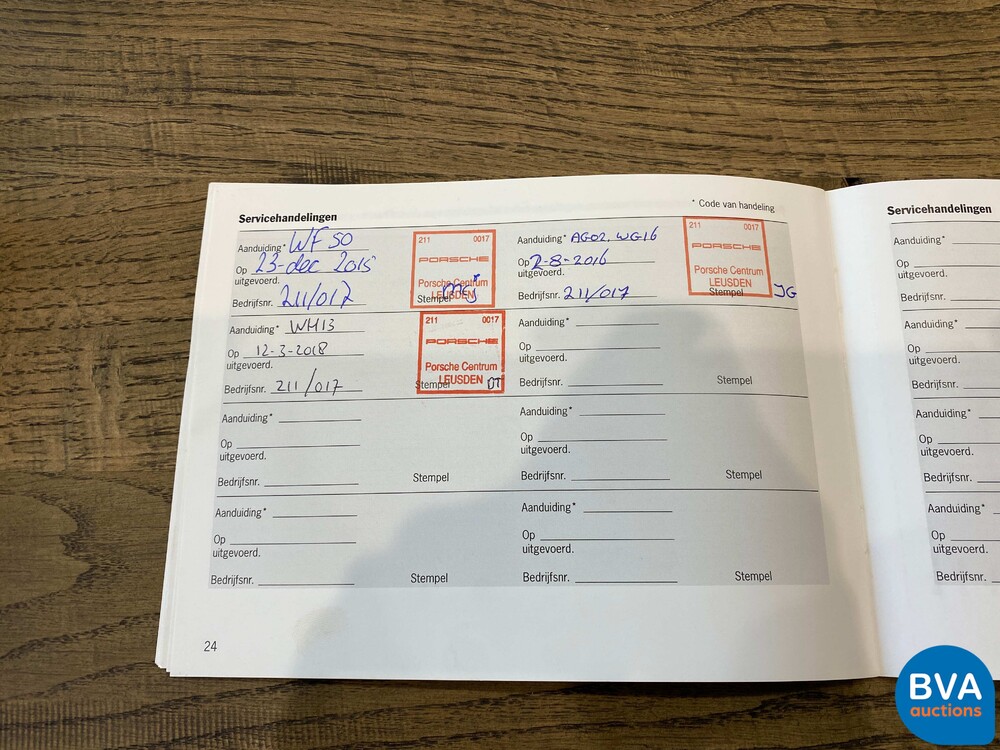 Servicehandelingen
* Code van handeling
Aanduiding* WF 50
Op 23-dec 2015
uitgevoerd.
Bedrijfsnr. 211/017
Stempel
211 0017
PORSCHE
Porsche Centrum
LEUSDEN
Aanduiding* AG02, WG16
Op 2-8-2016
uitgevoerd.
Bedrijfsnr. 211/017
Stempel
211 0017
PORSCHE
Porsche Centrum
LEUSDEN
JG
Aanduiding* WH13
Op 12-3-2018
uitgevoerd.
Bedrijfsnr. 211/017
Stempel
211 0017
PORSCHE
Porsche Centrum
LEUSDEN
DT
Aanduiding*
Op
uitgevoerd.
Bedrijfsnr.
Stempel
Aanduiding*
Op
uitgevoerd.
Bedrijfsnr.
Stempel
Aanduiding*
Op
uitgevoerd.
Bedrijfsnr.
Stempel
Aanduiding*
Op
uitgevoerd.
Bedrijfsnr.
Stempel
Aanduiding*
Op
uitgevoerd.
Bedrijfsnr.
Stempel
24
Servicehandelingen
Aanduiding*
Op
uitgevoerd.
Bedrijfsnr.
Aanduiding*
Op
uitgevoerd.
Bedrijfsnr.
Aanduiding*
Op
uitgevoerd.
Bedrijfsnr.
Aanduiding*
Op
uitgevoerd.
Bedrijfsnr.
BVA
auctions